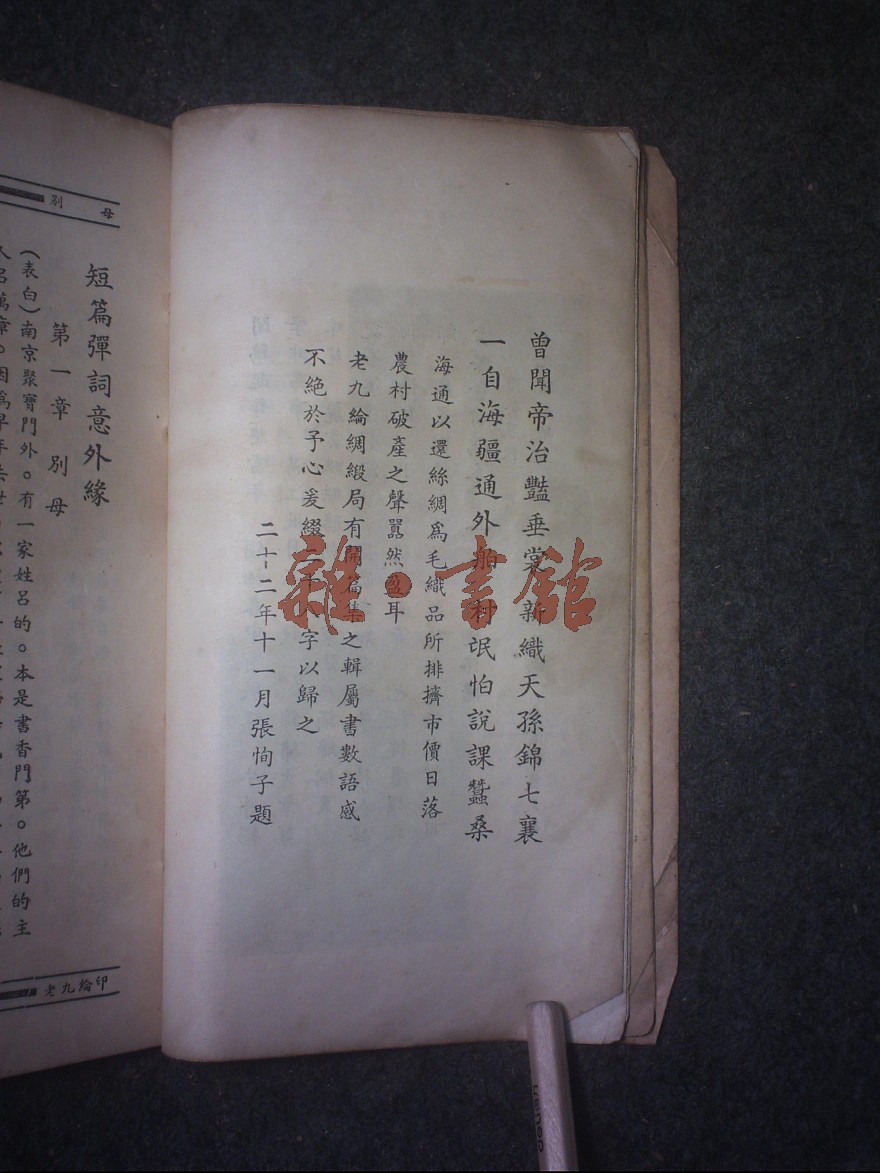 曾聞帝治豔垂裳新織天孫錦七襄
一自海疆通外舶村氓怕說課蠶桑
海通以還絲綢爲毛織品所排擠市價日落
農村破產之聲囂然盈耳
老九綸綢緞局有開篇集之輯屬書數語感
不絕於予心爰綴二十 字以歸之
二十二年十一月張恂子題
母 別
短篇彈詞意外緣
第一章 別母
(表白)南京聚寶門外。有一家姓呂的。本是書香門第。他們的主
老九綸印
雜·書館